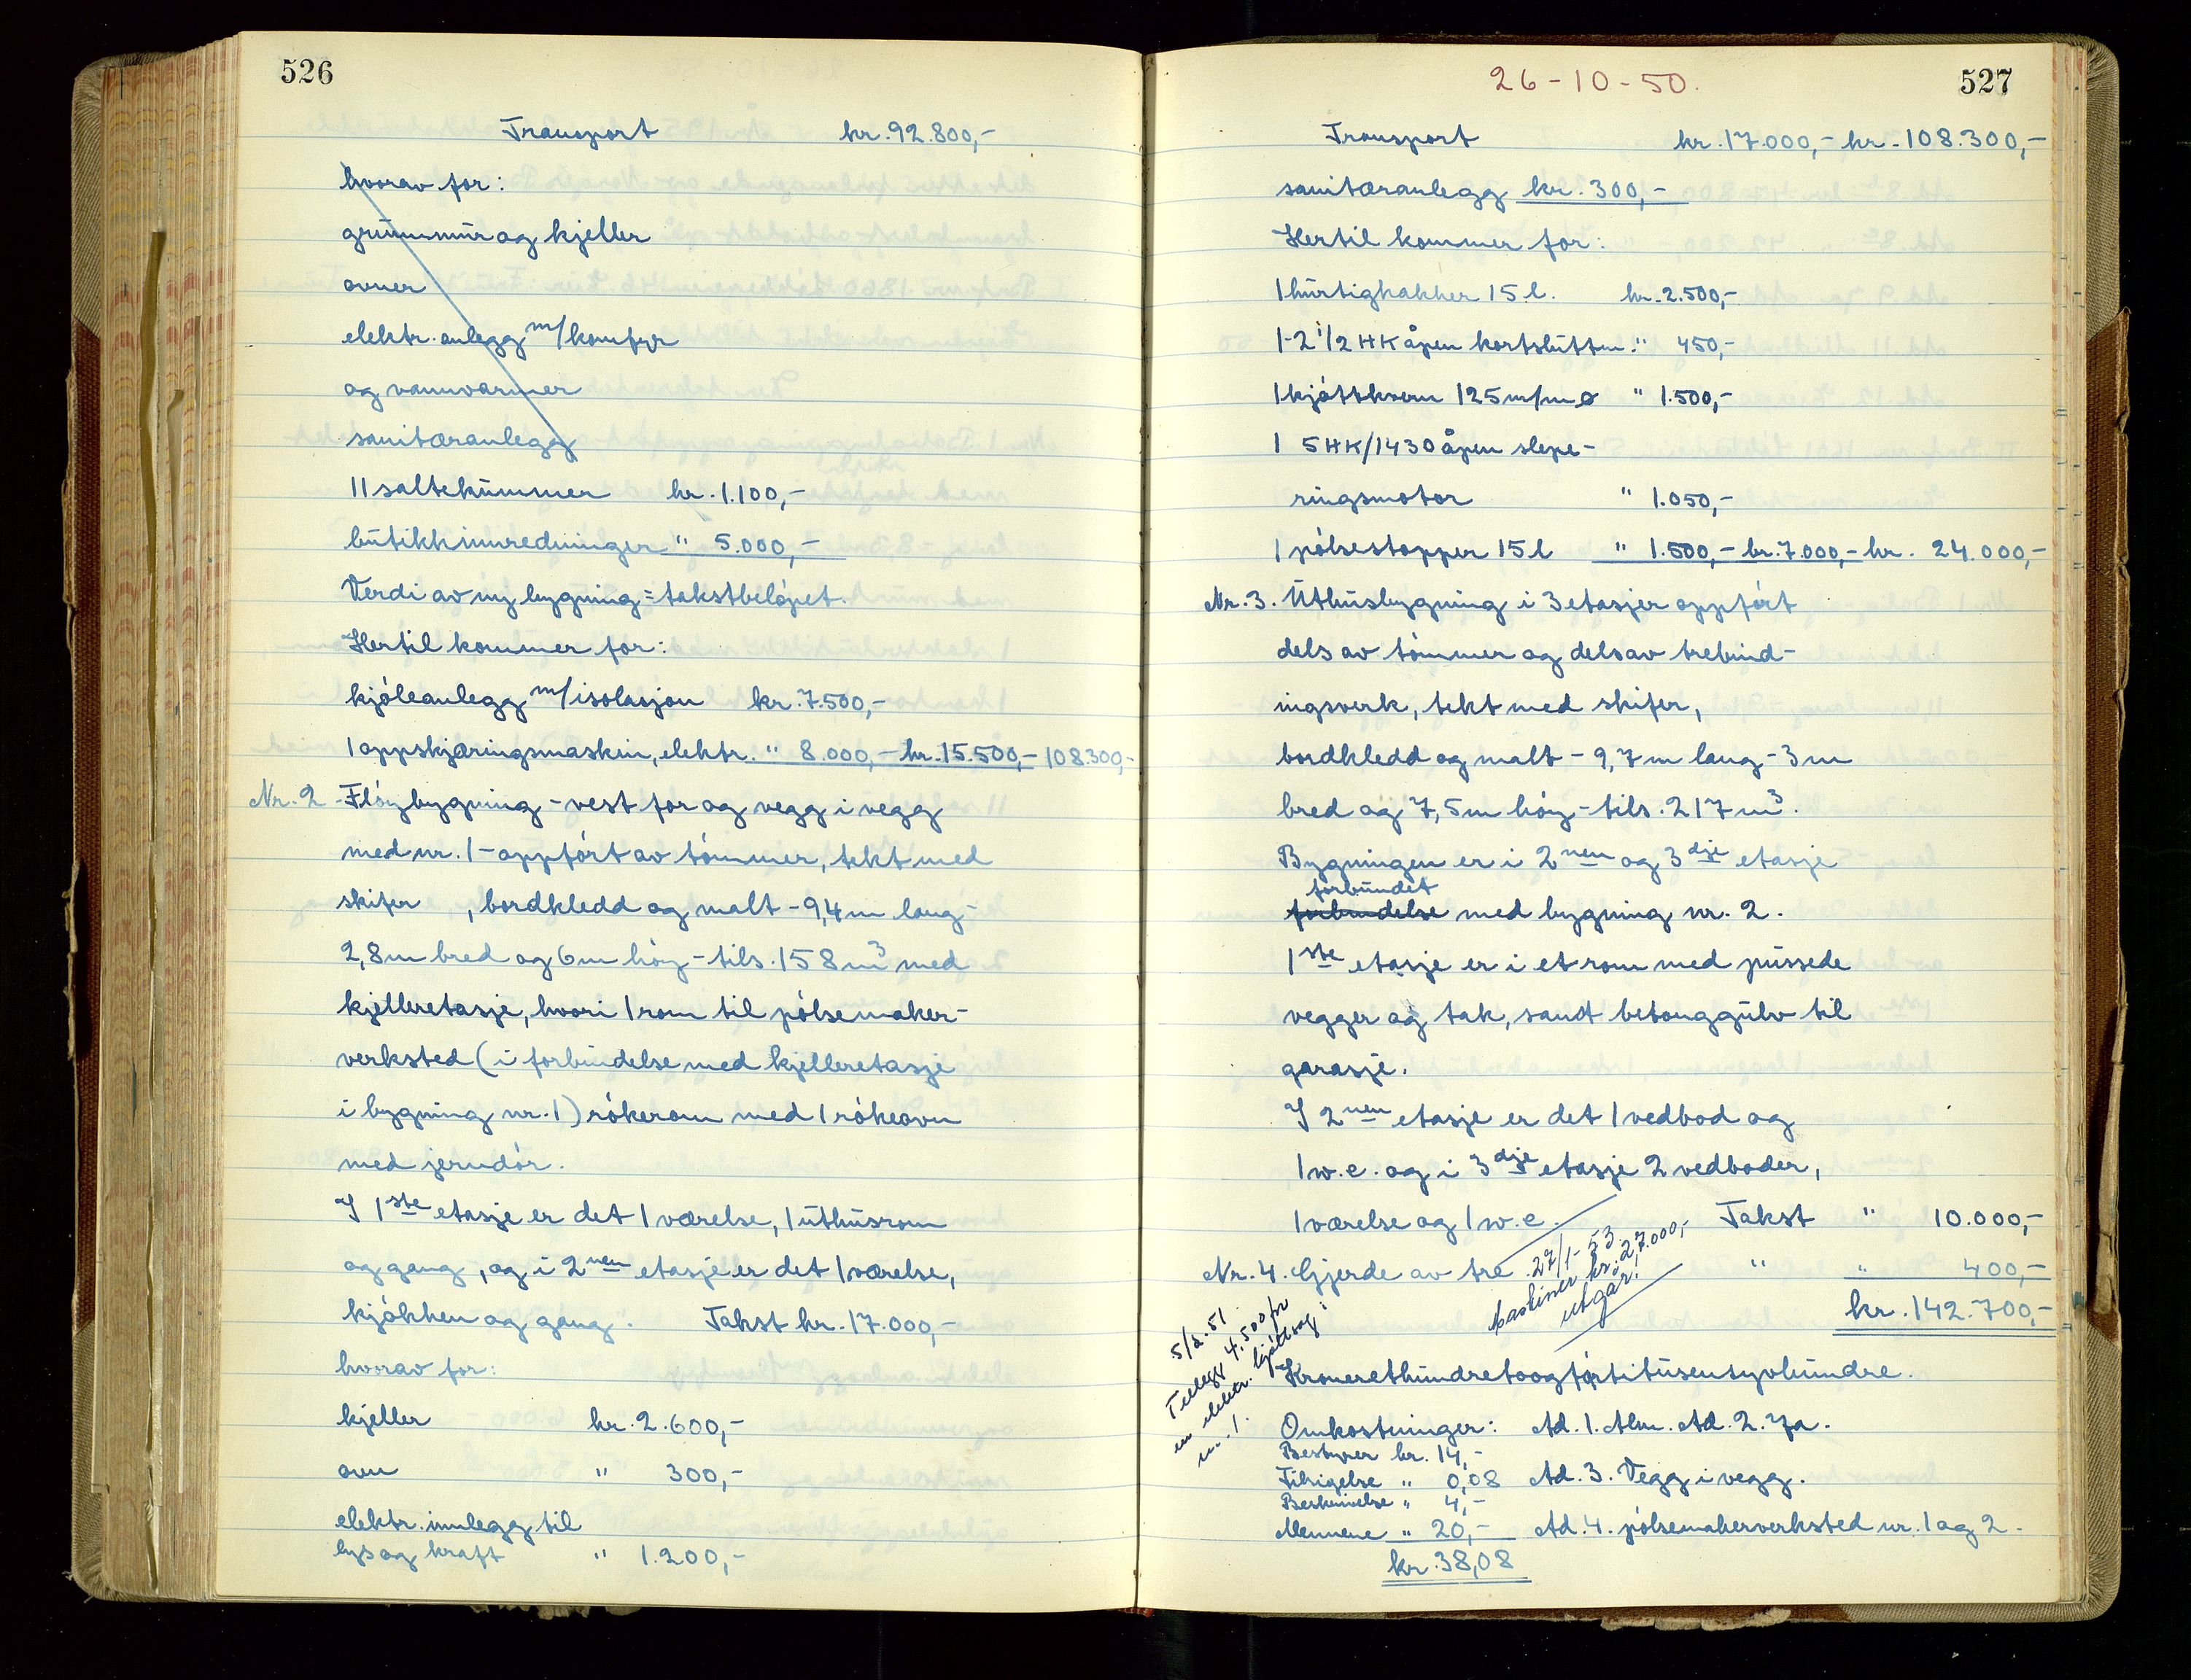 526
Transport kr. 92.800,-
hvorav for:
grunnmur og kjeller
ovner
elektr. anlegg m/komfyr
og vannvarmer
sanitæranlegg
11 saltekummer kr. 1.100,-
butikkinnredninger " 5.000,-
Verdi av ny bygning = takstbeløpet.
Hertil kommer for:
kjøleanlegg m/isolasjon kr. 7.500,-
1 oppskjæringsmaskin, elektr. " 8.000,- kr. 15.500,- 108.300,-
Nr. 2 - Fløybygning - vest for og vegg i vegg
med nr. 1 - oppført av tømmer, tekt med
skifer , bordkledd og malt - 9,4 m lang -
2,8 m bred og 6 m høy - tils. 158 m³ med
kjelleretasje, hvori 1 rom til pølsemaker-
verksted (i forbindelse med kjelleretasje
i bygning nr. 1) røkerom med 1 røkeovn
med jerndør.
I 1ste etasje er det 1 værelse, 1 uthusrom
og gang, og i 2nen etasje er det 1 værelse,
kjøkken og gang. Takst kr. 17.000,-
hvorav for:
kjeller kr. 2.600,-
ovn " 300,-
elektr. innlegg til
lys og kraft " 1.200,-
26-10-50. 527
Transport kr. 17.000,- kr. 108.300,-
sanitæranlegg kr. 300,-
Hertil kommer for:
1 hurtighakker 15 l. kr. 2.500,-
1-2 1/2 HK åpen kortsluttm. " 450,-
1 kjøttkvern 125 m/m ø " 1.500,-
1 5 HK/1430 åpen slepe-
ringsmotor " 1.050,-
1 pølsestopper 15 l " 1.500,- kr. 7.000,- kr. 24.000,-
Nr. 3. Uthusbygning i 3 etasjer oppført
dels av tømmer og dels av trebind-
ingsverk, tekt med skifer,
bordkledd og malt - 9,7 m lang - 3 m
bred og 7,5 m høy - tils. 217 m³.
Bygningen er i 2nen og 3dje etasje
forbundet
forbindelse med bygning nr. 2.
1ste etasje er i et rom med pussede
vegger og tak, samt betonggulv til
garasje.
I 2nen etasje er det 1 vedbod og
1 w.c. og i 3dje etasje 2 vedboder,
1 værelse og 1 w.c. Takst " 10.000,-
Nr. 4. Gjerde av tre " " 400,-
27/1-53.
Maskiner kr. 27.000,-
utgår.
kr. 142.700,-
5/2.51
Tillegg 4.500 for
en elektr. kjøttsag i
nr. 1.
Kroneretthundretoogførtitusensyvhundre.
Omkostninger: Ad. 1. Alm. Ad. 2. Ja.
Bestyrer kr. 14,-
Tilsigelse " 0,08 Ad. 3. Vegg i vegg.
Beskrivelse " 4,-
Mennene " 20,- Ad. 4. pølsemakerverksted nr. 1 og 2.
kr. 38,08